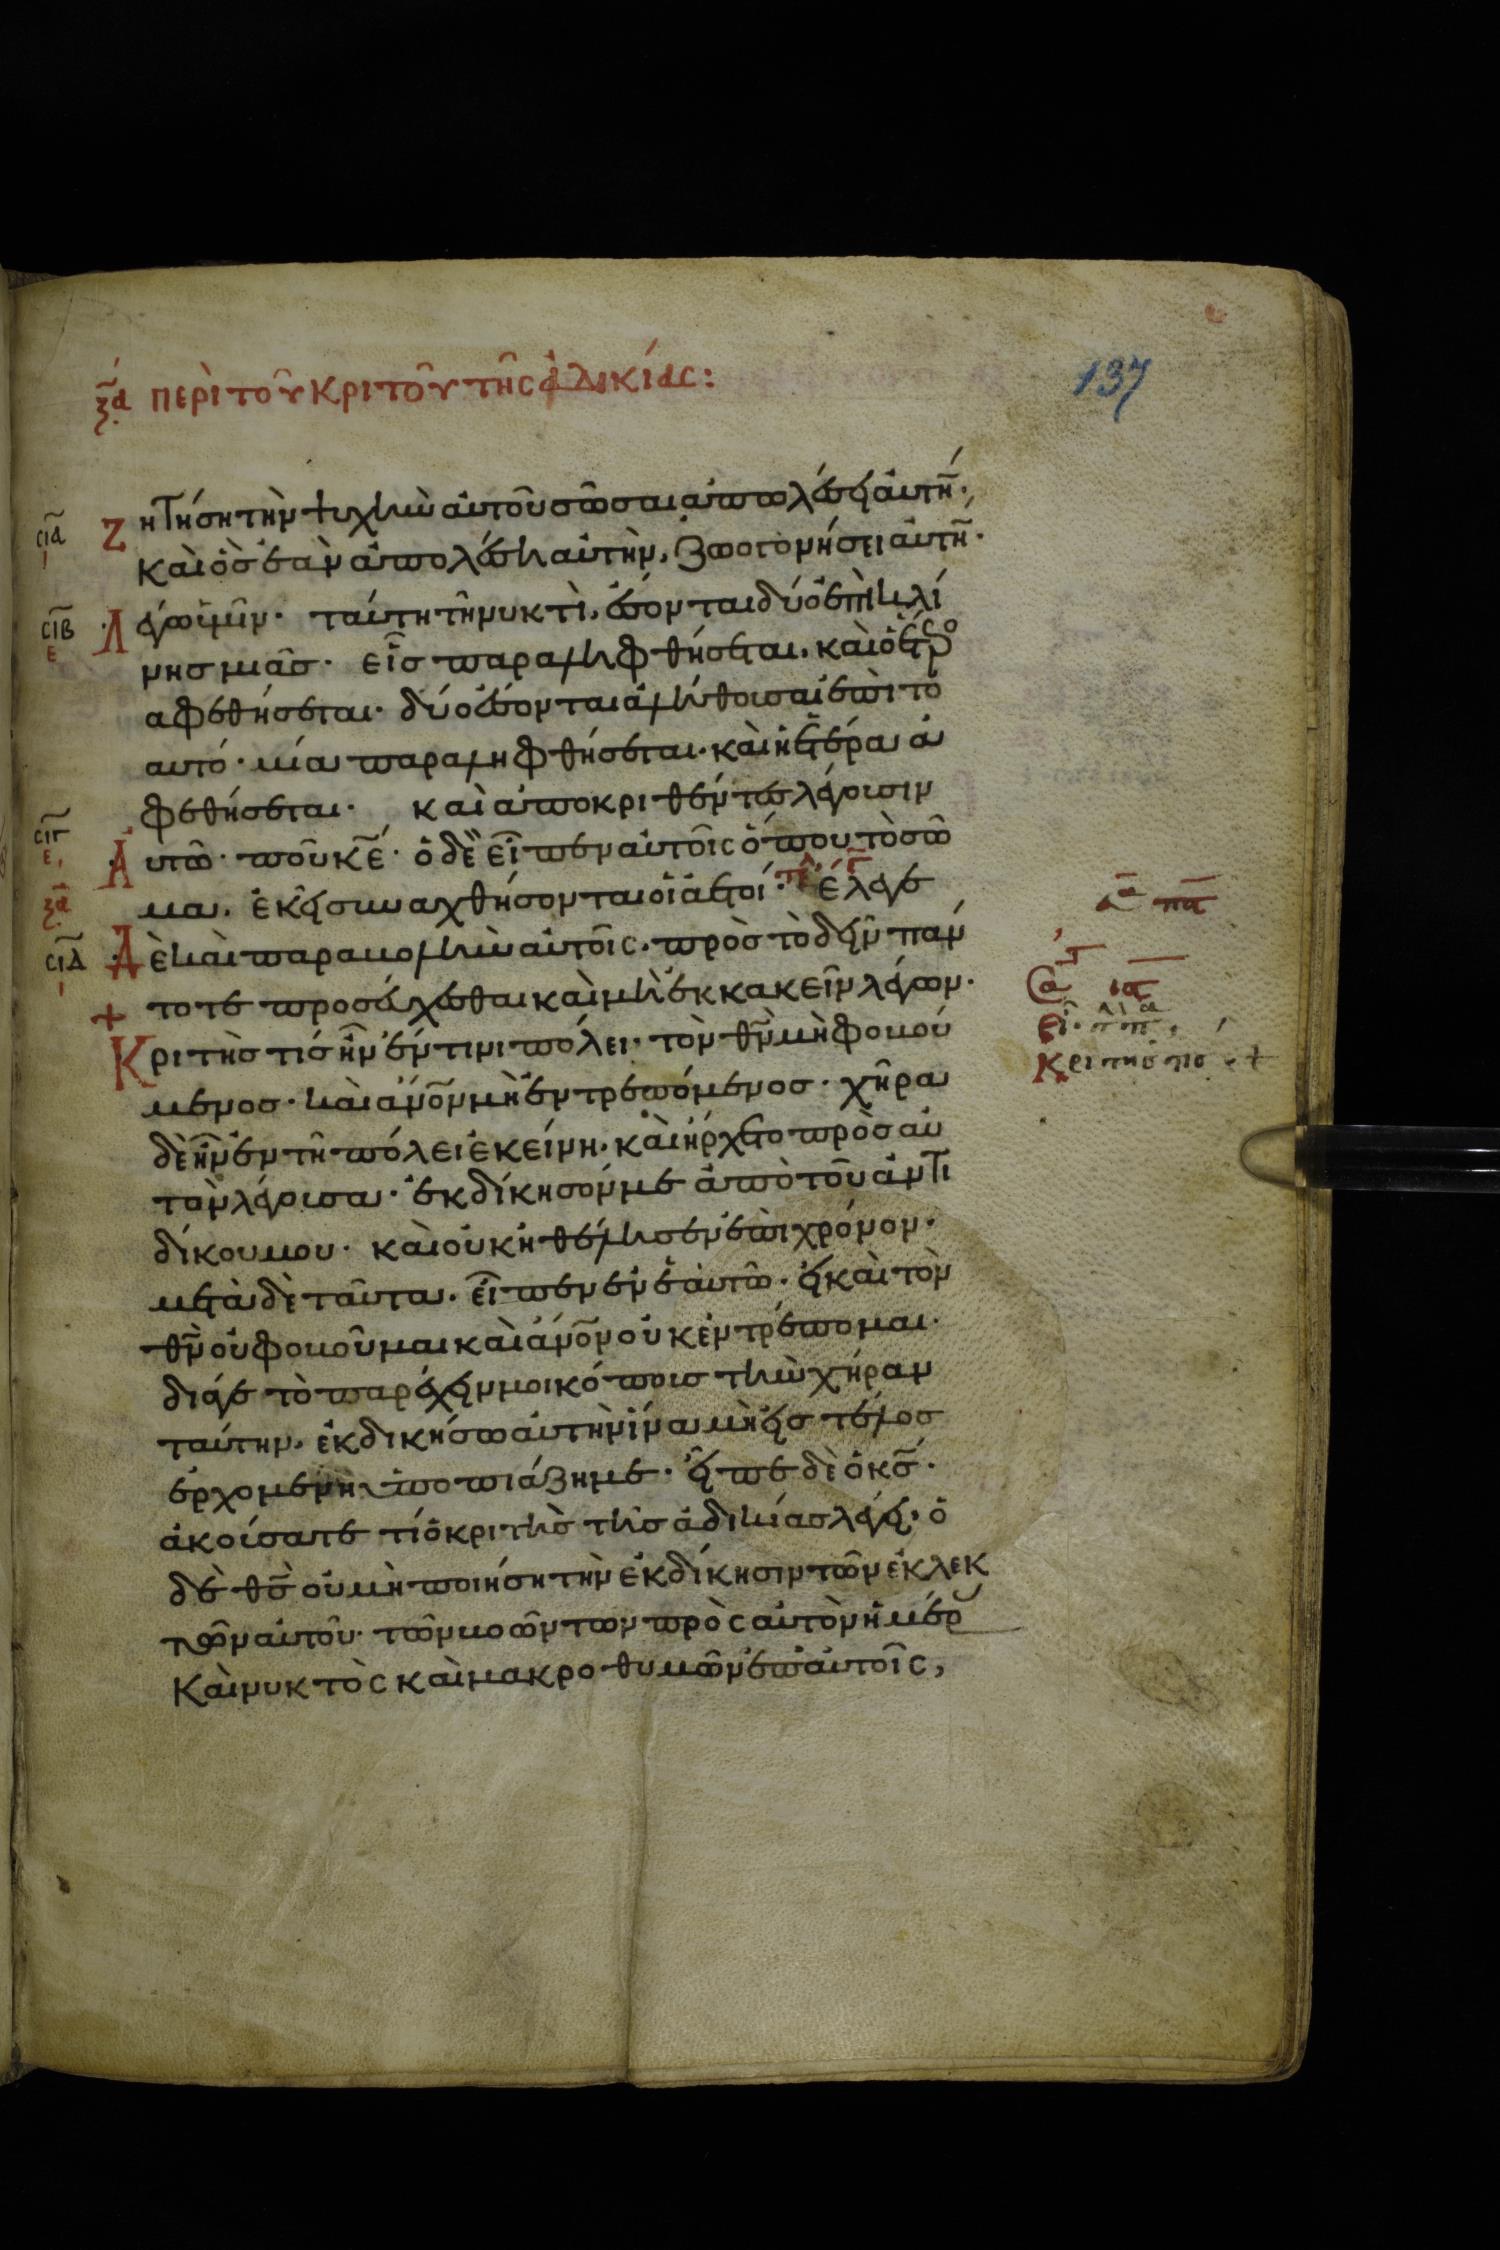 ξα περὶ τοῦ κριτοῦ τῆς ἀδικίας:
137
ζητήση τὴν ψυχὴν αὐτοῦ σῶσαι ἀπολέσει αὐτή̅·
καὶ ὃς ἐὰν ἀπολέση αὐτὴν, ζωογονήσει αὐτή̅·
λέγω ὑμῖν· ταύτη τῆ νυκτὶ, ἔσονται δύο ἐπὶ κλί
νης μιᾶς· εἷς παραληφθήσεται, καὶ ὁ ἕτερο
ἀφεθήσεται· δύο ἔσονται ἀλήθουσαι ἐπὶ το
αυτό· μία παραληφθήσεται· καὶ ἡ ἑτέρα ἀ
φεθήσεται· καὶ ἀποκριθέντες λέγουσιν
αυτῶ· ποῦ κ̅ε̅· ὁ δὲ εἶπεν αὐτοῖς ὅπου τὸ σῶ
μα, ἐκεῖ συναχθήσονται οἱ ἀετοί· ἔλεγε
δὲ καὶ παραβολὴν αὐτοῖς, πρὸς τὸ δεῖν πάν
τοτε προσεύχεσθαι καὶ μὴ ἐκκακεῖν λέγων·
κριτής τίς ἦν ἔν τινι πόλει· τὸν θ̅ν̅ μὴ φοβού
μενος· καὶ ἄν̅ο̅ν̅ μὴ ἐντρεπόμενος· χῆρα
δὲ ἦν ἐν τῆ πόλει ἐκείνη, καὶ ἤρχετο πρὸς αὐ
τὸν λέγουσα· ἐκδίκησόν με ἀπὸ τοῦ ἀντι
δίκου μου· καὶ οὐκ ἠθέλησεν ἐπὶ χρόνον·
μετὰ δὲ ταῦτα, εἶπεν ἐν ἑαυτῶ· εἰ καὶ τὸν
θ̅ν̅ οὐ φοβοῦμαι καὶ ἄν̅ο̅ν̅ οὐκ ἐντρέπομαι·
διά γε τὸ παρέχειν μοι κόπους τὴν χήραν
ταύτην, ἐκδικήσω αὐτὴν ἵνα μὴ εἰς τέλος
ἐρχομένη ὑποπιάζη με· εἶπε δὲ ὁ κ̅ς̅·
ἀκούσατε τί ὁ κριτὴς τῆς ἀδικίας λέγει· ὁ
δὲ θ̅ς̅ οὐ μὴ ποιήση τὴν ἐκδίκησιν τῶν ἐκλεκ
τῶν αὐτοῦ τῶν βοώντων πρὸς αὐτὸν ἡμέρ
καὶ νυκτὸς καὶ μακροθυμῶν ἐπ' αὐτοῖς,
σια
ι
σιβ
ε
σιγ
ε
ξα
σιδ
ι